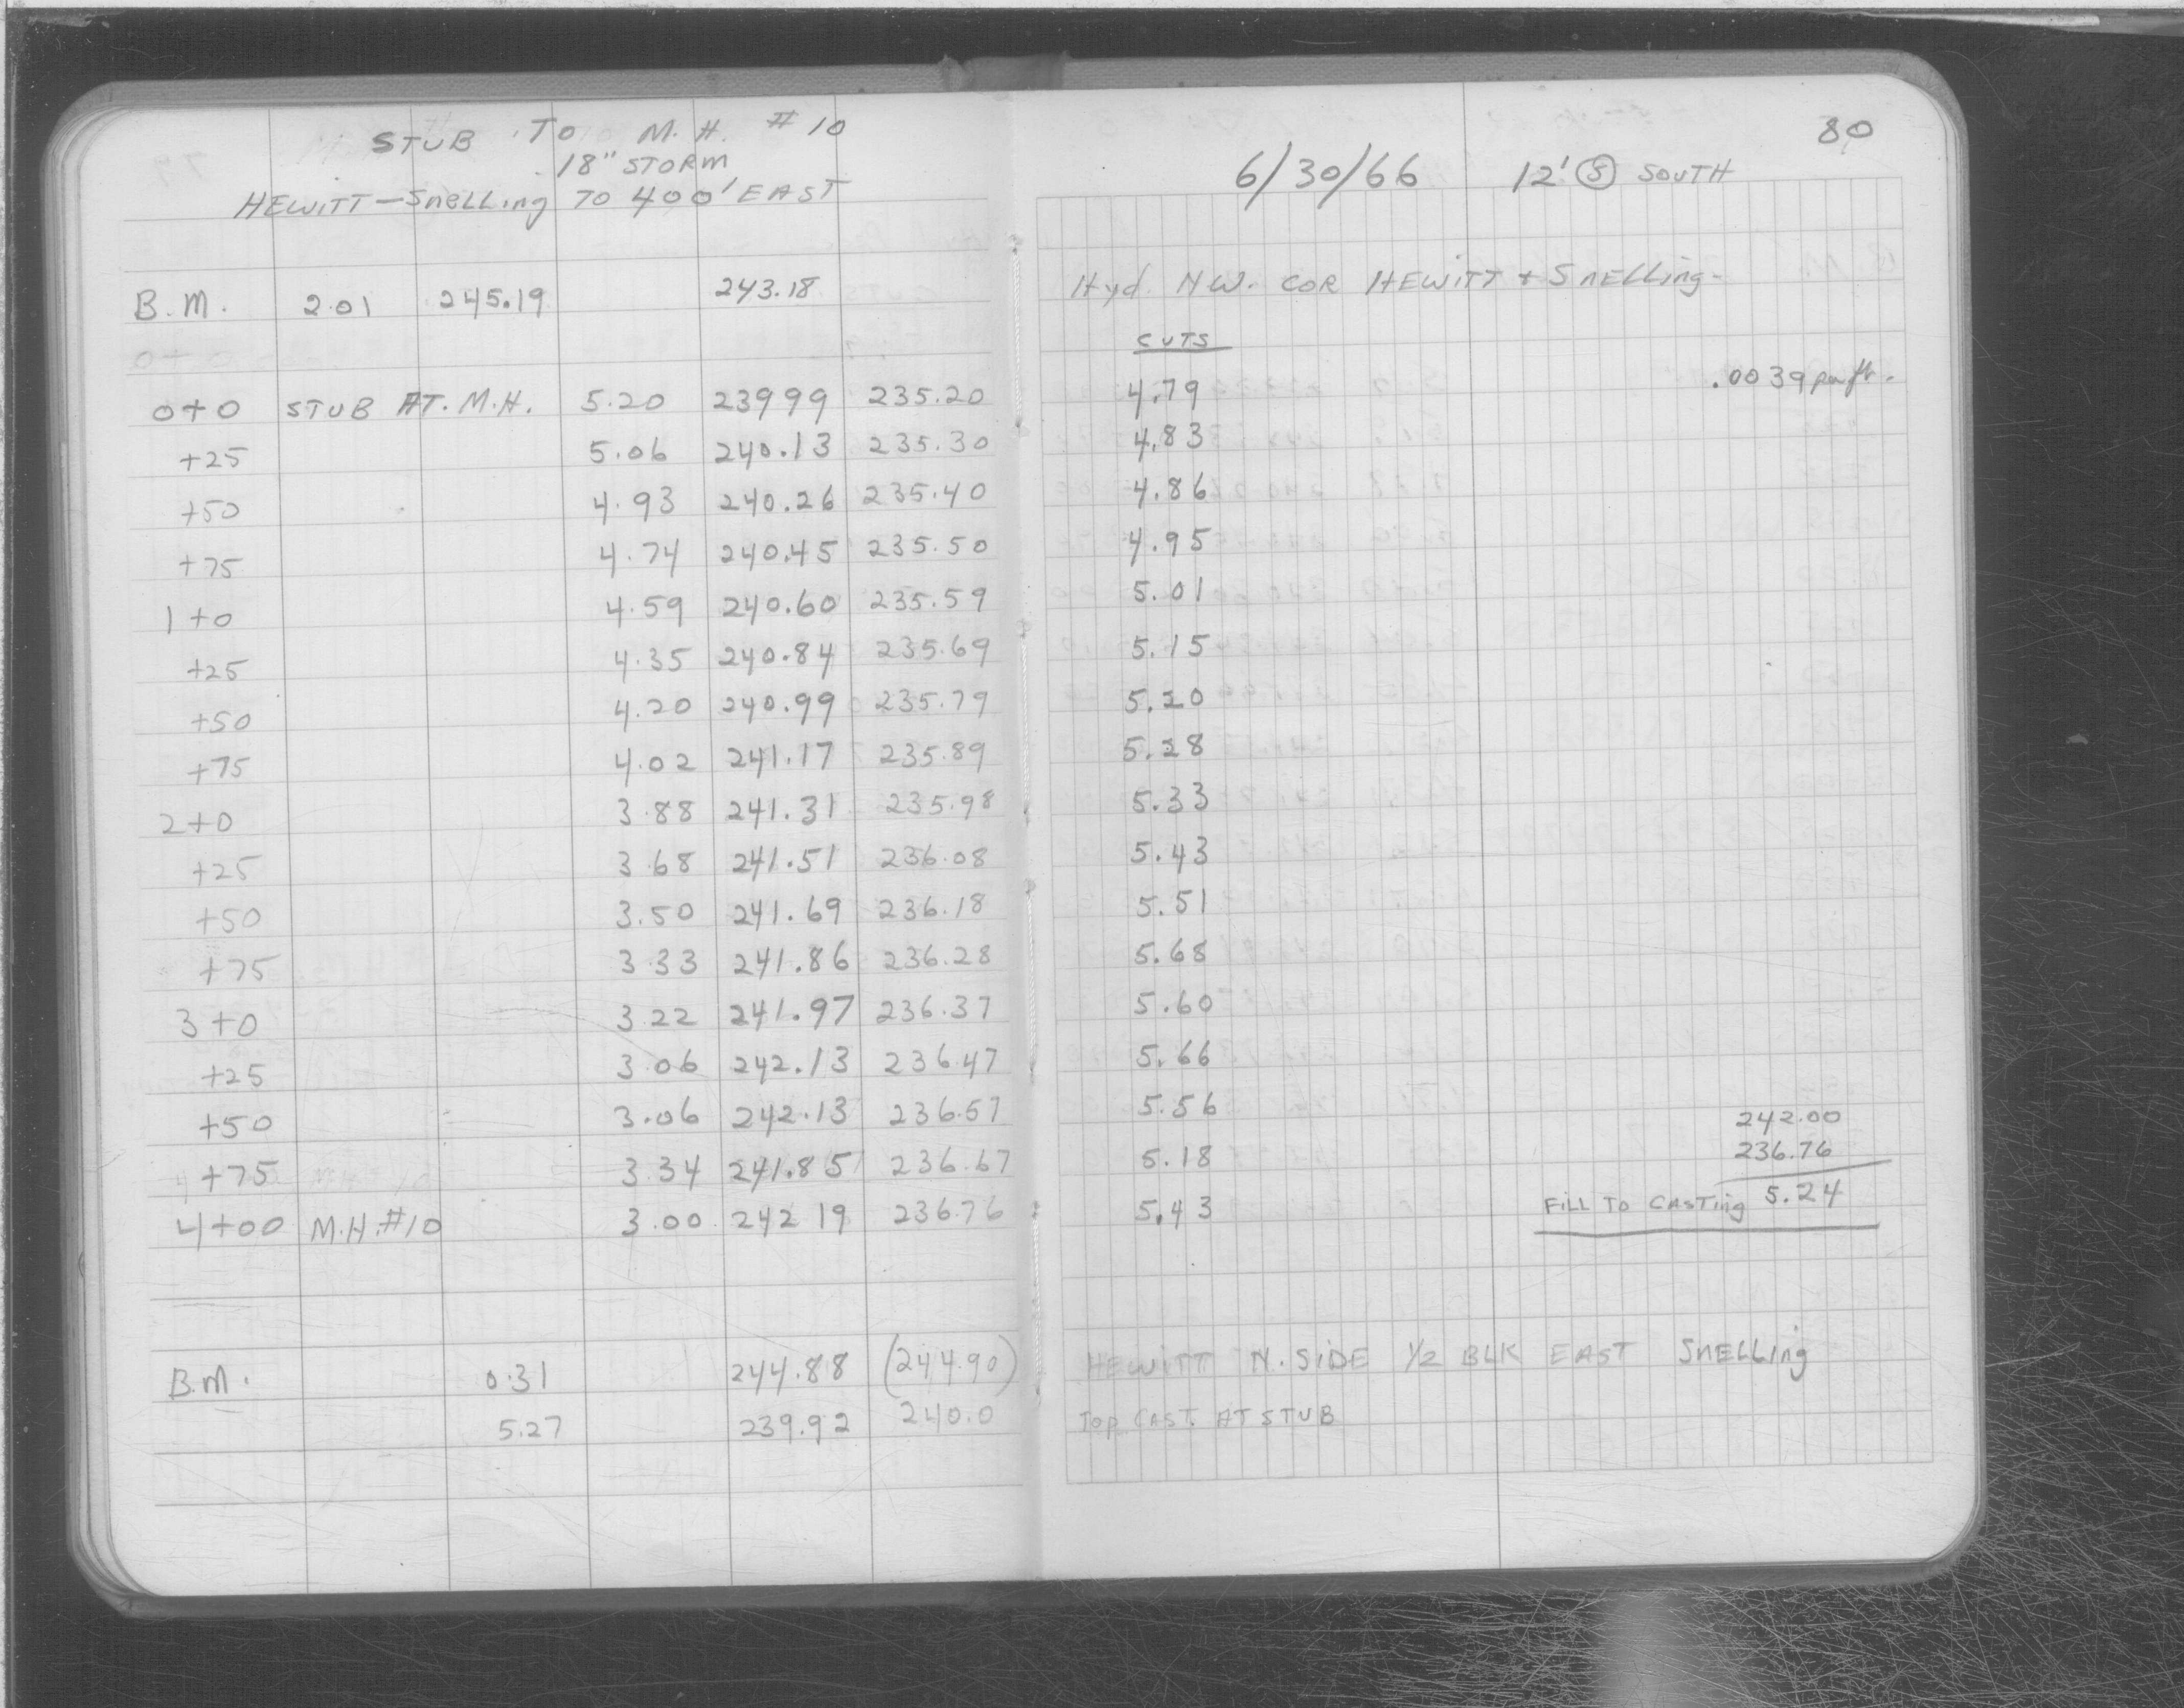 STUB TO M.H. #10
18" STORM
HEWITT-Snelling TO 400' EAST
B.M. 2.01 245.19 243.18
0+0 STUB AT. M.H. 5.20 239 99 235.20
+25 5.06 240.13 235.30
+50 4.93 240.26 235.40
+75 4.74 240.45 235.50
1+0 4.59 240.60 235.59
+25 4.35 240.84 235.69
+50 4.20 240.99 235.79
+75 4.02 241.17 235.89
2+0 3.88 241.31 235.98
+25 3.68 241.51 236.08
+50 3.50 241.69 236.18
+75 3.33 241.86 236.28
3+0 3.22 241.97 236.37
+25 3.06 242.13 236.47
+50 3.06 242.13 236.57
+75 3.34 241.85 236.67
4+00 M.H.#10 3.00 242 19 236.76
B.M. 0.31 244.88 (244.90)
5.27 239.92 240.0
80
6/30/66 12' Ⓢ SOUTH
Hyd. NW. COR HEWITT + SNELLing-
CUTS
4.79 .0039 per ft.
4.83
4.86
4.95
5.01
5.15
5.20
5.28
5.33
5.43
5.51
5.68
5.60
5.66
5.56 242.00
5.18 236.76
5.43 FILL TO CASTing 5.24
HEWITT N. SIDE 1/2 BLK EAST SNELLing
TOP CAST. AT STUB